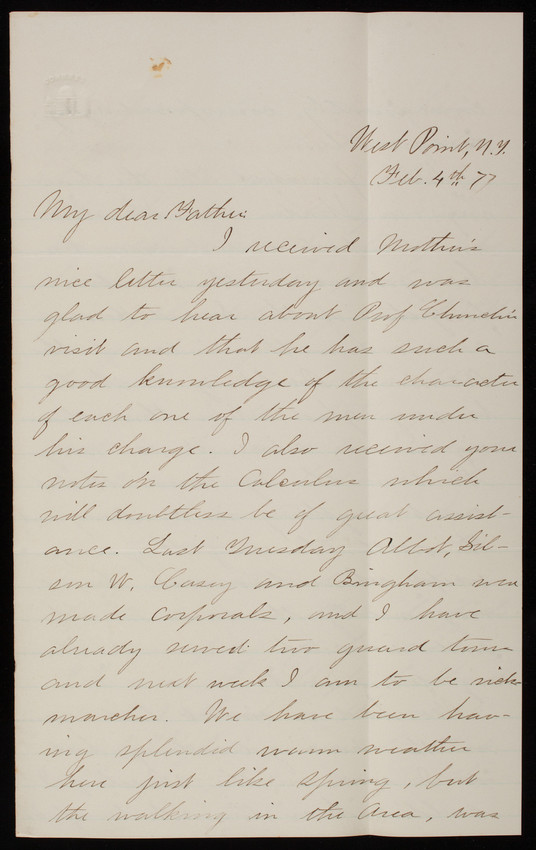 West Point, N.Y.
Feb. 4th 77
My dear Father:
I received Mother's
nice letter yesterday and was
glad to hear about Prof Church's
visit and that he has such a
good knowledge of the character
of each one of the men under
his charge. I also received your
notes on the Calculus which
will doubtless be of great assist-
ance. Last Tuesday Abbot,
W. Casey and Bingham were
made Corporals, and I have
already served two guard tours
and next week I am to be
marcher. We have been hav-
ing splendid warm weather
here just like Spring, but
the walking in the Area, was